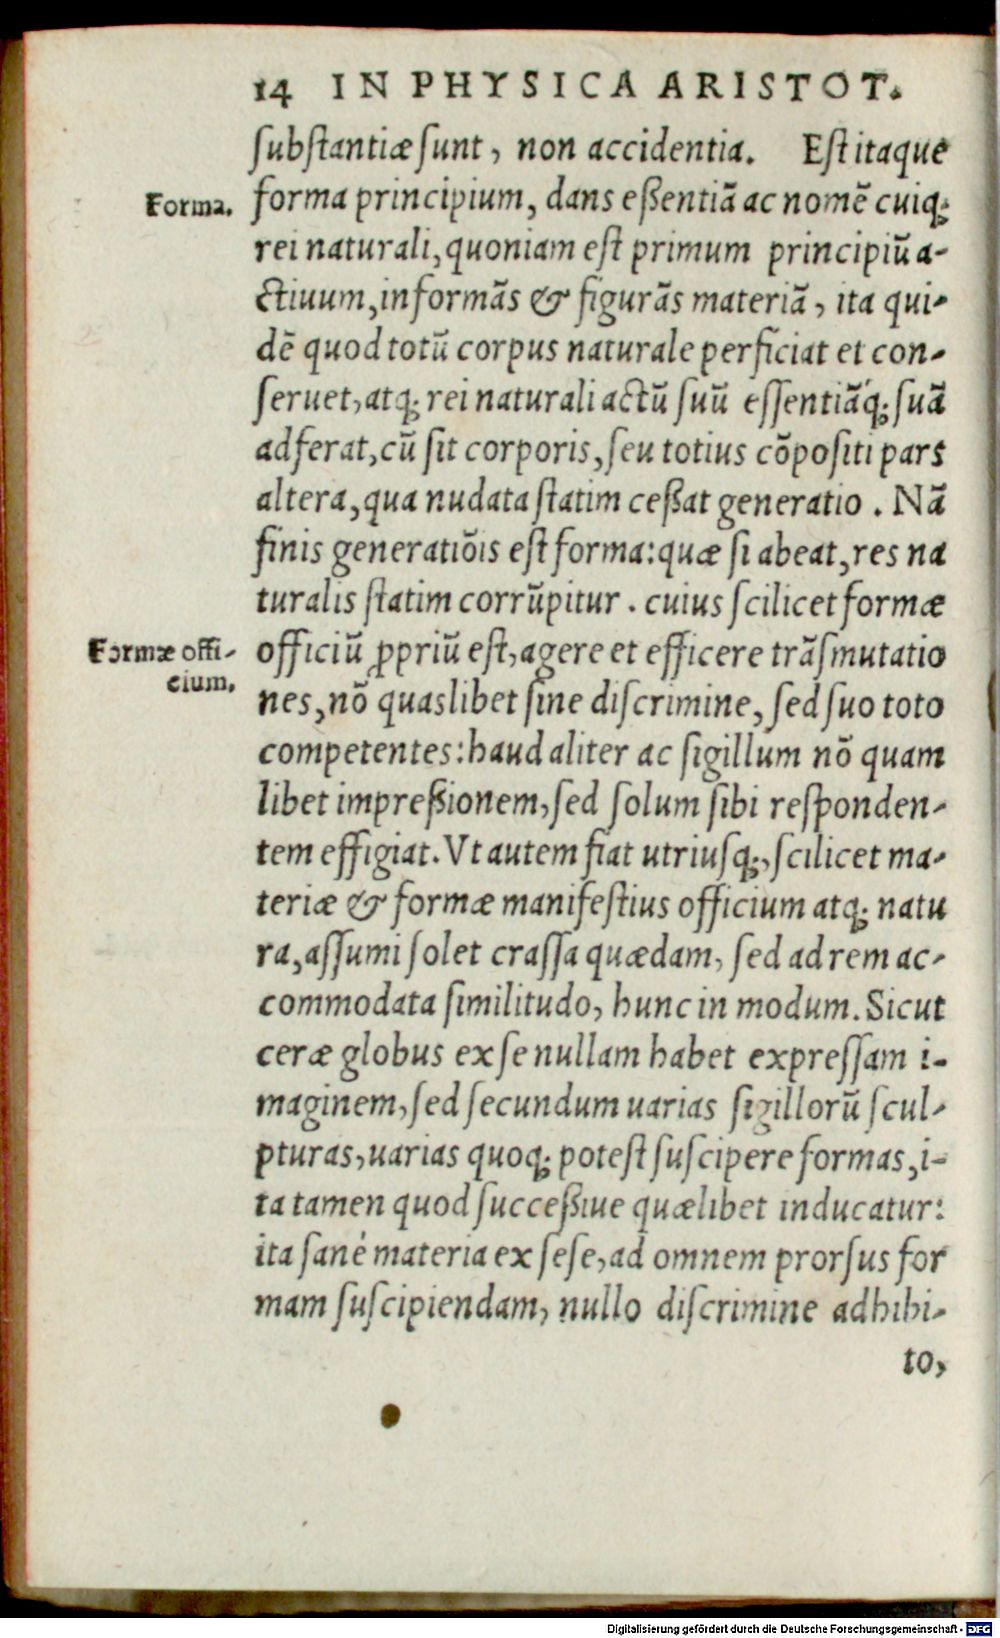 14 IN PHYSICA ARISTOT.
substantiæ sunt, non accidentia. Est itaque
Forma.
forma principium, dans eßentiã ac nomẽ cuiq;
rei naturali, quoniam est primum principiũ a-
ctiuum, informãs & figurãs materiã, ita qui-
dẽ quod totũ corpus naturale perficiat et con-
seruet, atq; rei naturali actũ suũ essentiãq́; suã
adferat, cũ sit corporis, seu totius cõpositi pars
altera, qua nudata statim ceßat generatio. Nã
finis generatiõis est forma: quæ si abeat, res na
turalis statim corrũpitur. cuius scilicet formæ
Formæ offi-
cium.
officiũ ꝓpriũ est, agere et efficere trãsmutatio
nes, nõ quaslibet sine discrimine, sed suo toto
competentes: haud aliter ac sigillum nõ quam
libet impreßionem, sed solum sibi responden-
tem effigiat. Vt autem fiat utriusq;, scilicet ma-
teriæ & formæ manifestius officium atq; natu
ra, assumi solet crassa quædam, sed ad rem ac-
commodata similitudo, hunc in modum. Sicut
ceræ globus ex se nullam habet expressam i-
maginem, sed secundum uarias sigillorũ scul-
pturas, uarias quoq; potest suscipere formas, i-
ta tamen quod succeßiue quælibet inducatur:
ita sanè materia ex sese, ad omnem prorsus for
mam suscipiendam, nullo discrimine adhibi-
to,
Digitalisierung gefördert durch die Deutsche Forschungsgemeinschaft - DFG